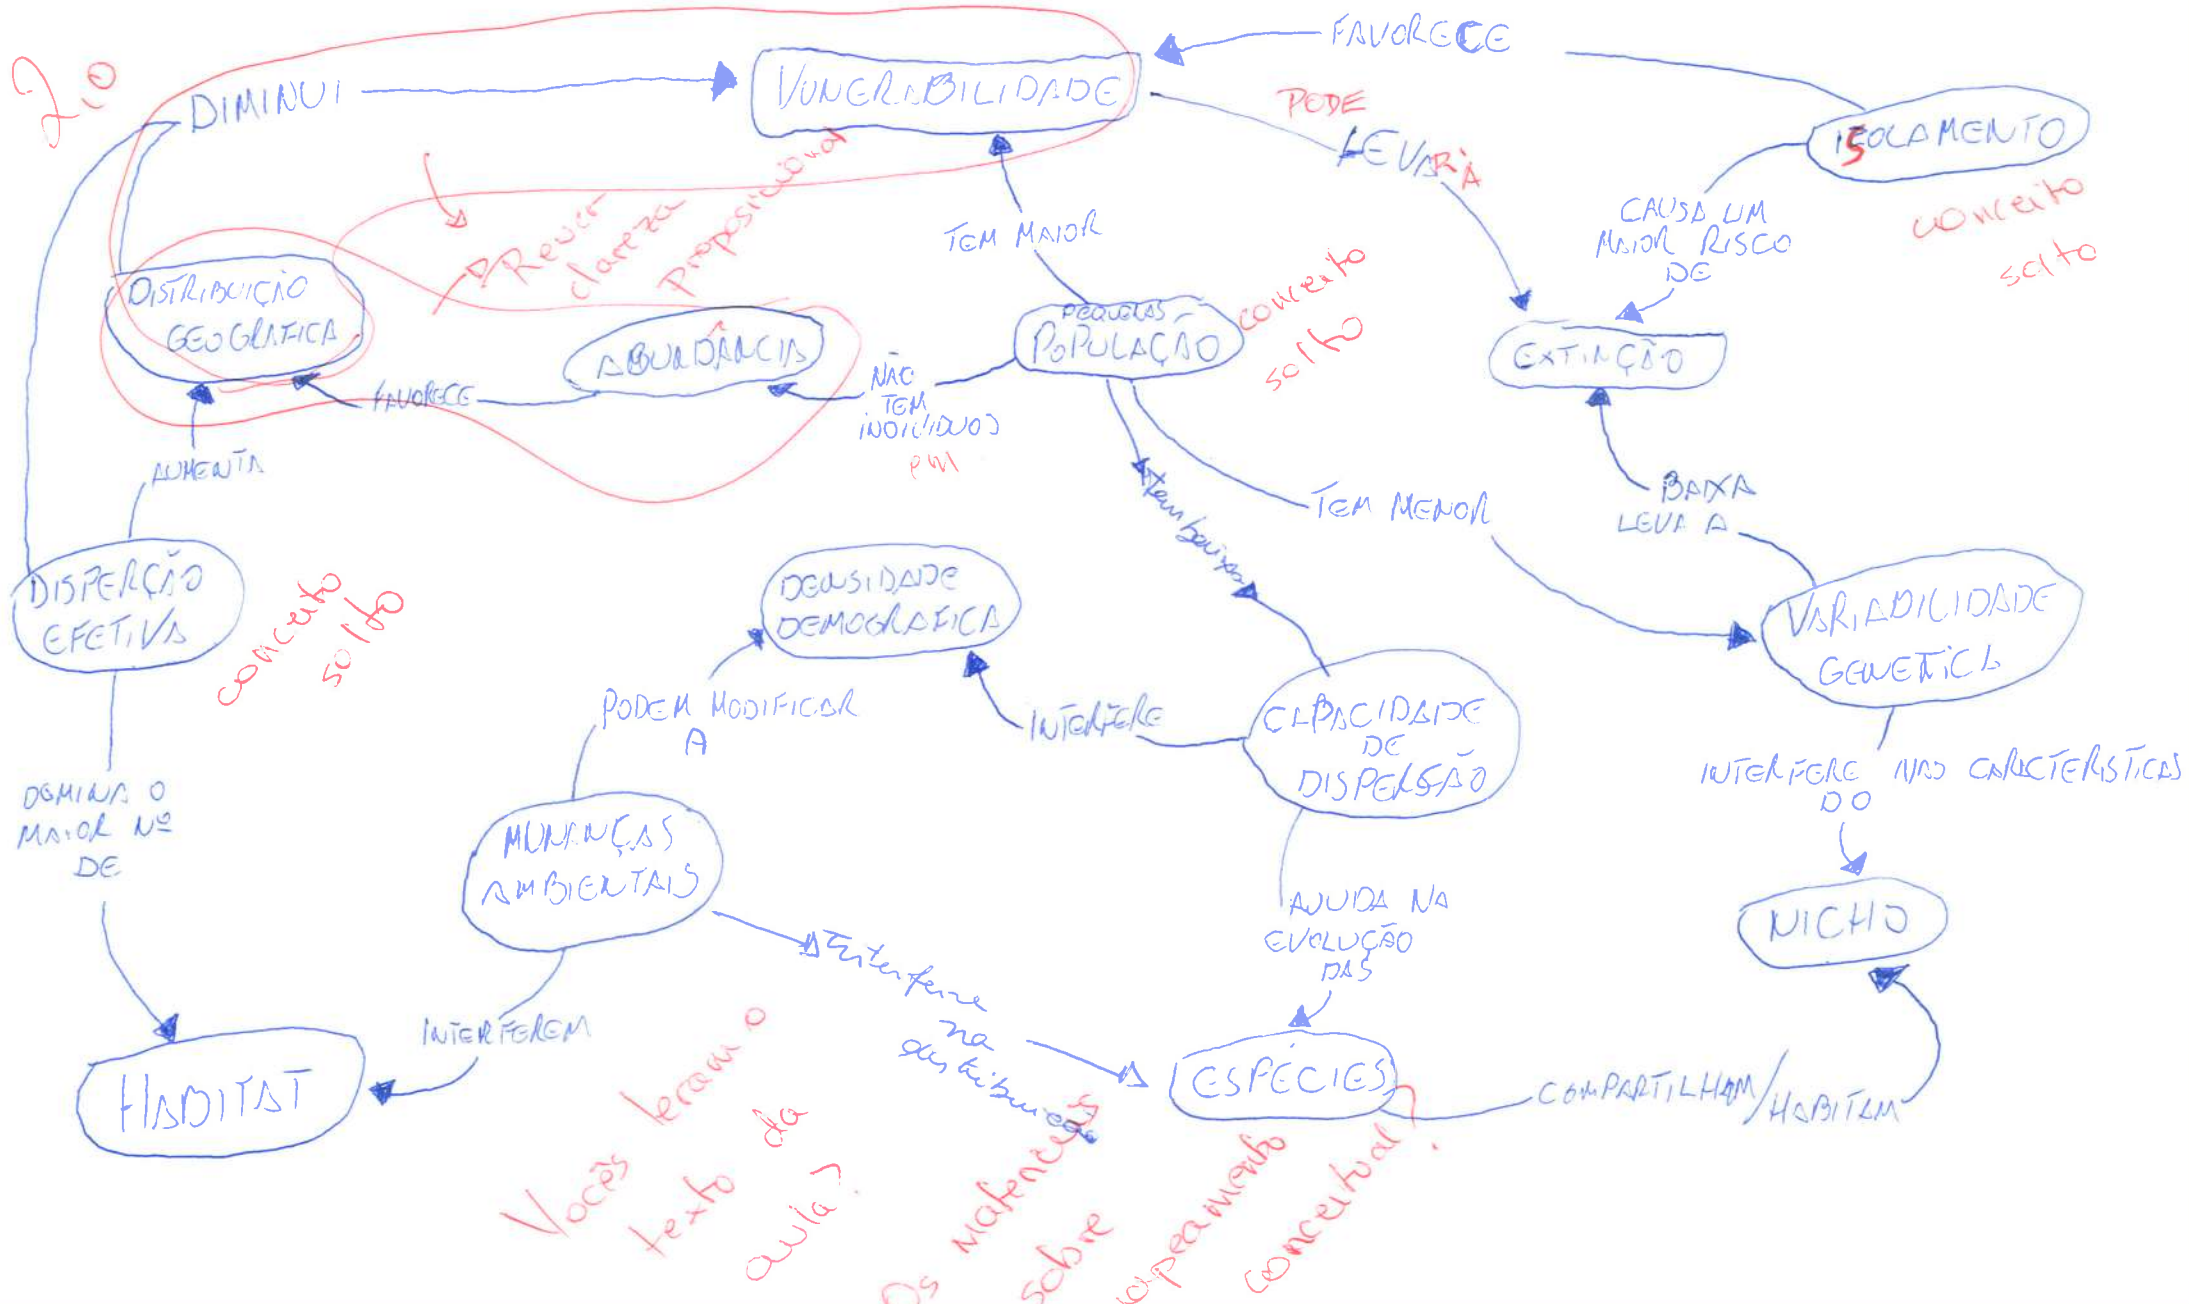 2,0
DIMINUI
VUNERABILIDADE
FAVORECE
PODE
LEVAR À
ISOLAMENTO
conceito
solto
CAUSA UM
MAIOR RISCO
DE
TEM MAIOR
Rever
clareza
proposicional
DISTRIBUIÇÃO
GEOGRAFICA
ABUNDÂNCIA
PEQUENAS
POPULAÇÃO
conceito
solto
EXTINÇÃO
FAVORECE
NÃO
TEM
INDIVIDUOS
em
AUMENTA
tem baixa
TEM MENOR
BAIXA
LEVA A
DISPERÇÃO
EFETIVA
conceito
solto
DENSIDADE
DEMOGRAFICA
VARIABILIDADE
GENETICA
PODEM MODIFICAR
A
INTERFERE
CAPACIDADE
DE
DISPERSÃO
INTERFERE NAS CARACTERISTICAS
DO
DOMINA O
MAIOR Nº
DE
MUNANÇAS
AMBIENTAIS
AJUDA NA
EVOLUÇÃO
DAS
NICHO
interfere
na
distribuição
INTERFEREM
HABITAT
ESPÉCIES
COMPARTILHAM/HABITAM
Vocês leram o
texto da
aula?
Os materiais
sobre
mapeamento
conceitual?